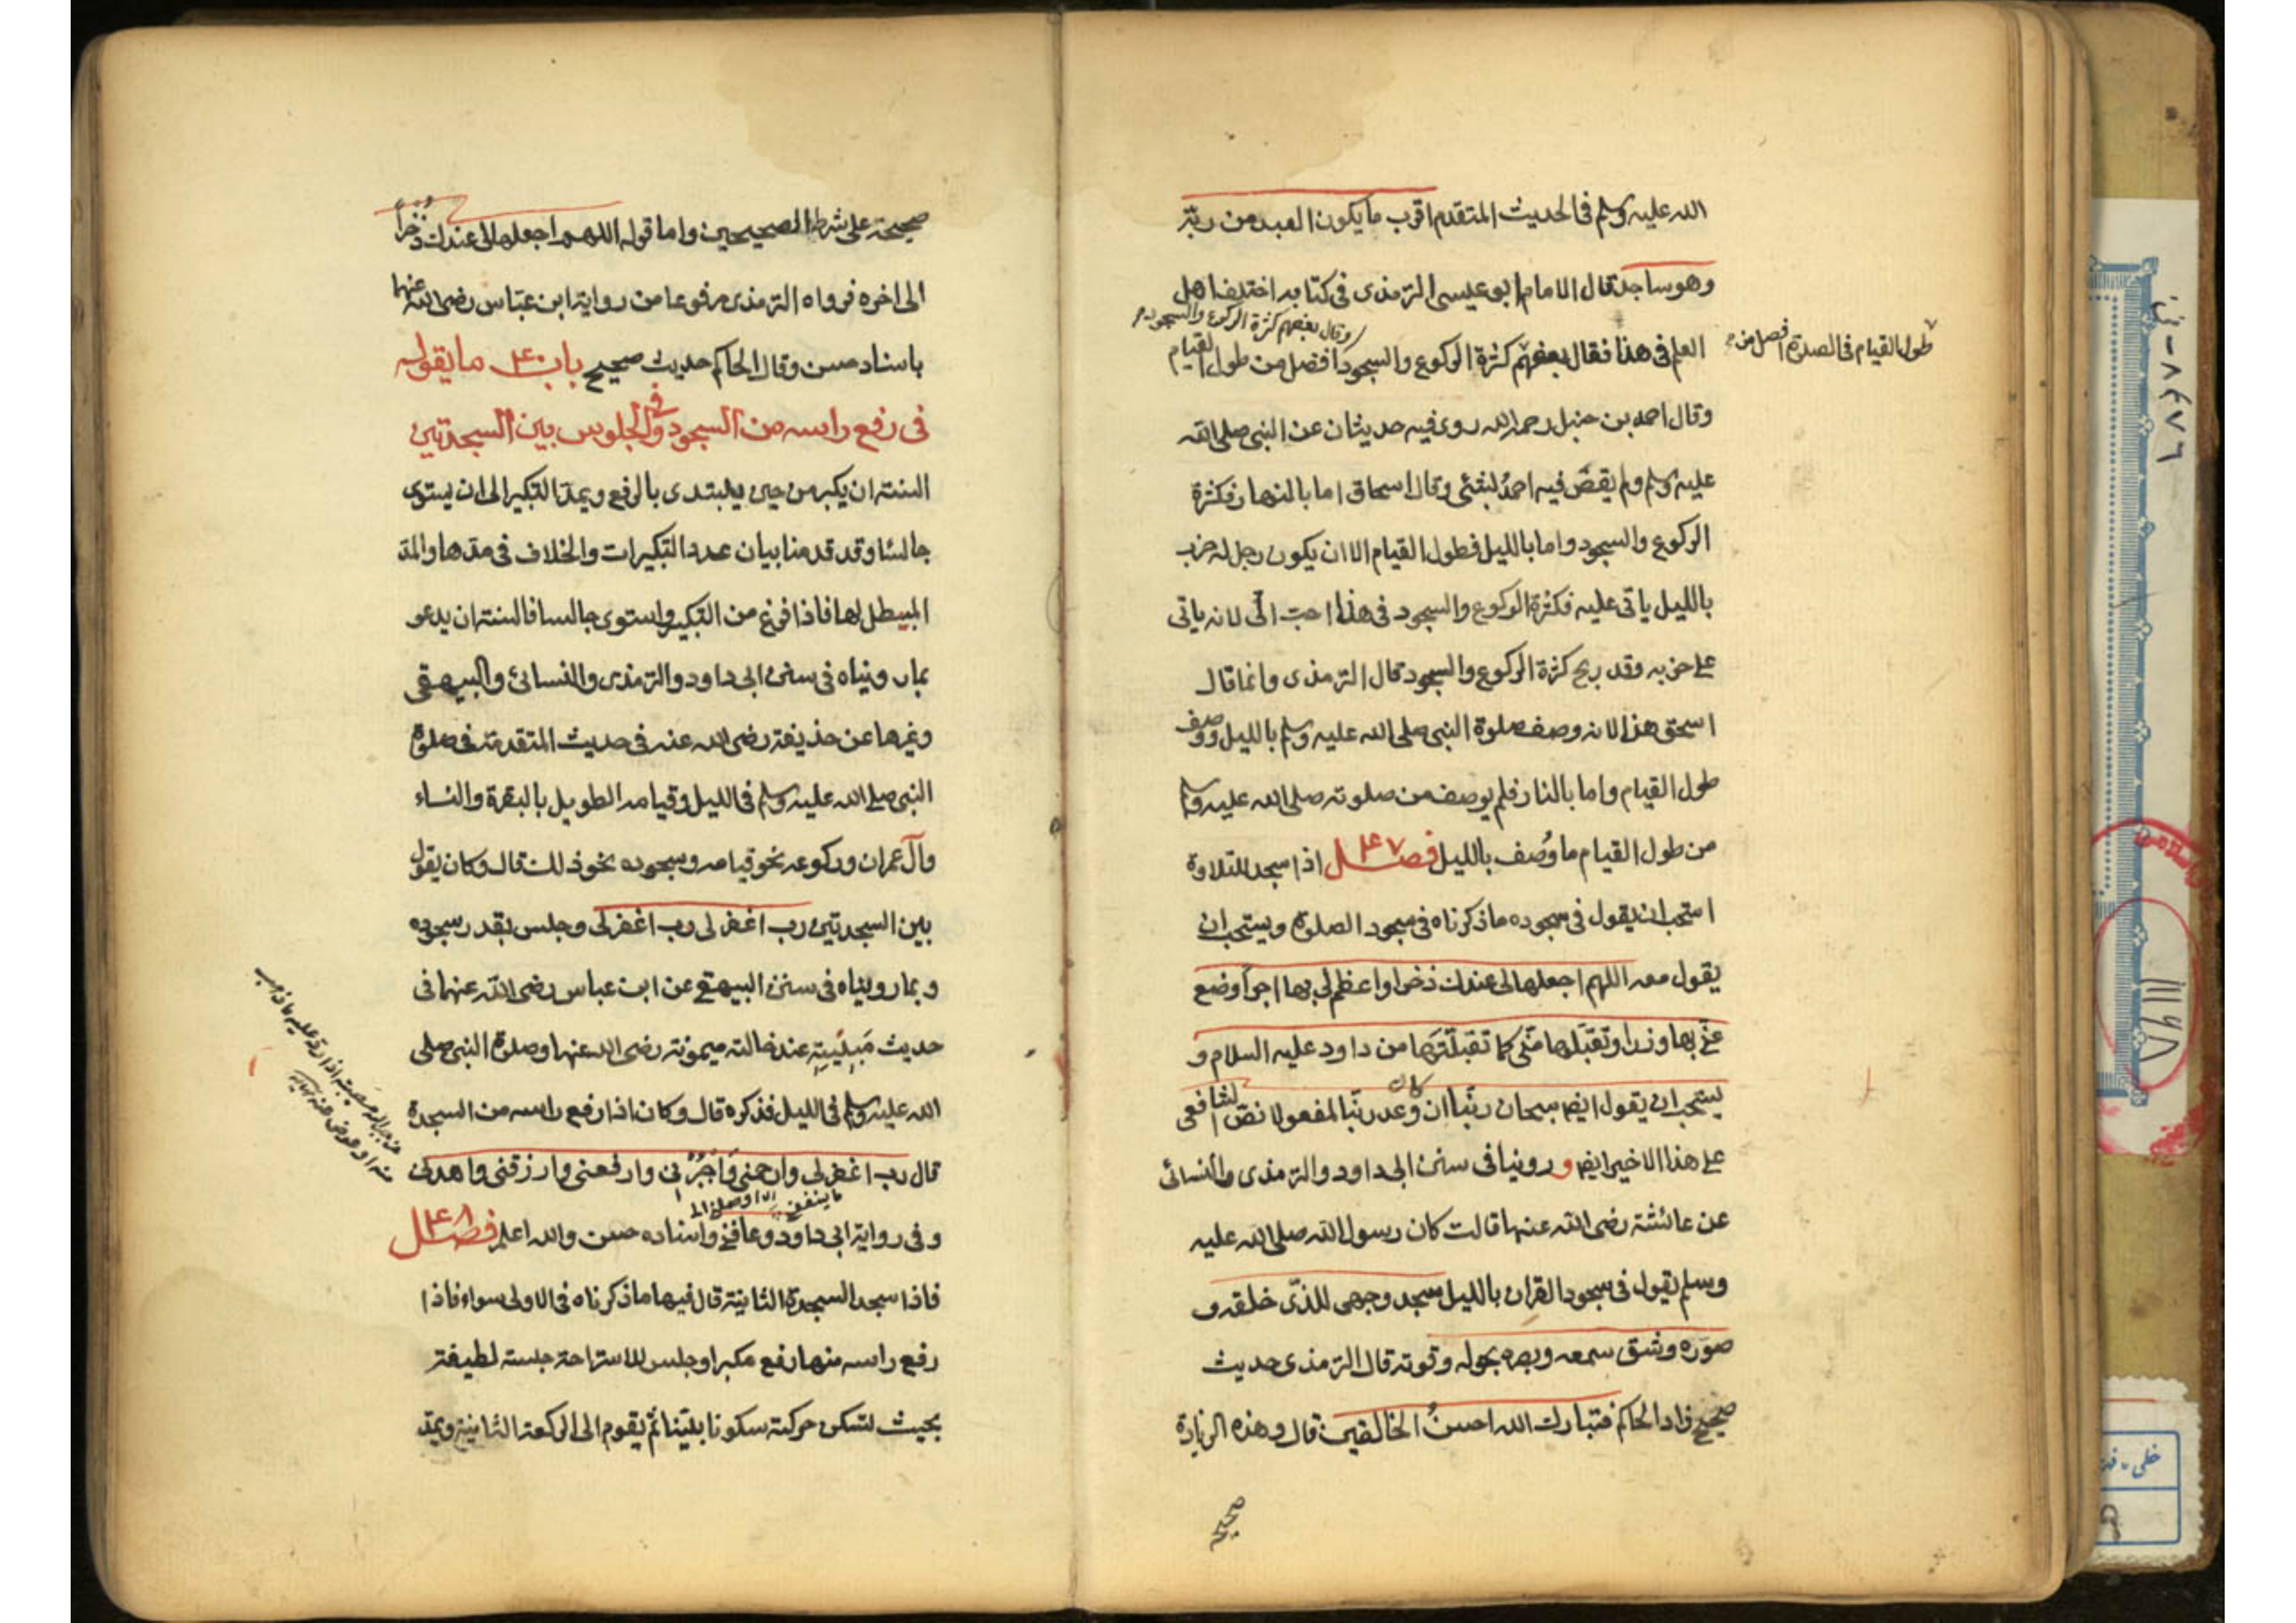 الله عليه وسلم فى الحديث المتقدم اقرب ما يكون العبد من ربه
وهو ساجد قال الامام ابو عيسى الترمذى فى كتابه اختلف اهل
العلم فى هذا فقال بعضهم كثرة الركوع والسجود افضل من طول القيام
وقال بعضهم كثرة الركوع والسجود
طول القيام فى الصلوة افضل من
وقال احمد بن حنبل رحمه الله روى فيه حديثان عن النبى صلى الله
عليه وسلم ولم يقض فيه احمد بشئ وقال اسحاق اما بالنهار فكثرة
الركوع والسجود واما بالليل فطول القيام الا ان يكون رجل له حزب
بالليل ياتى عليه فكثرة الركوع والسجود فى هذا احبّ الىّ لانه ياتى
على حزبه وقد ربح كثرة الركوع والسجود قال الترمذى وانما قال
اسحق هذا لانه وصف صلوة النبى صلى الله عليه وسلم بالليل ووصف
طول القيام واما بالنار فلم يوصف من صلوته صلى الله عليه وسلم
من طول القيام ما وُصف بالليل فصل ۴۷ اذا سجد للتلاوة
استحب ان يقول فى سجوده ما ذكرناه فى سجود الصلوة ويستحب ان
يقول معه اللهم اجعلها لى عندك ذخرا واعظم لى بها اجراً وضع
عنّى بها وزرا وتقبّلها منّى كما تقبلتها من داود عليه السلام و
يستحب ان يقول ايضا سبحان ربّنا ان كان وعد ربّنا لمفعولا نصّ الشافعى
على هذا الاخير ايضا و روينا فى سنن ابى داود والترمذى والنسائى
عن عائشة رضى الله عنها قالت كان رسول الله صلى الله عليه
وسلم يقول فى سجود القران بالليل سجد وجهى للذّى خلقه و
صوّره وشق سمعه وبصره بحوله وقوته قال الترمذى حديث
صحيح زاد الحاكم فتبارك الله احسنُ الخالقين قال وهذه الزيادة
صحيحة
صحيحة على شرط الصحيحين واما قوله اللهم اجعلها لى عندك ذُخراً
الى اخره فرواه الترمذى مرفوعا من رواية ابن عبّاس رضى الله عنهما
باسناد حسن وقال الحاكم حديث صحيح باب ۴۰ ما يقوله
فى رفع راسه من السجود وفى الجلوس بين السجدتين
السنة ان يكبر من حين يبتدى بالرفع ويمدّ التكبير الى ان يستوى
جالسا وقد قدمنا بيان عدد التكبيرات والخلاف فى مدّها والمدّ
المبطل لها فاذا فرغ من التكبير واستوى جالسا فالسنة ان يدعو
بما رويناه فى سنن ابى داود والترمذى والنسائى والبيهقى
وغيرها عن حذيفة رضى الله عنه فى حديث المتقدمة فى صلوة
النبى صلى الله عليه وسلم فى الليل وقيامه الطويل بالبقرة والنساء
وآل عمران وركوعه نحو قيامه وسجوده نحو ذلك قال وكان يقول
بين السجدتين رب اغفر لى رب اغفر لى وجلس بقدر سجوده
وبما رويناه فى سنن البيهقى عن ابن عباس رضى الله عنهما فى
حديث مَبِيْتِهِ عند خالته ميمونة رضى الله عنها وصلوة النبى صلى
الله عليه وسلم فى الليل فذكره قال وكان اذا رفع راسه من السجدة
قال رب اغفر لى وارحمنى وَاجْبُرْنى وارفعنى وارزقنى واهدنى
وفى رواية ابى داود وعافنى واسناده حسن والله اعلم فصل ۴۸
فاذا سجد السجدة الثانية قال فيها ما ذكرناه فى الاولى سواء فاذا
رفع راسه منها رفع مكبرا وجلس للاستراحة جلسة لطيفة
بحيث تسكن حركته سكونا بيّنا ثم يقوم الى الركعة الثانية ويمدّ